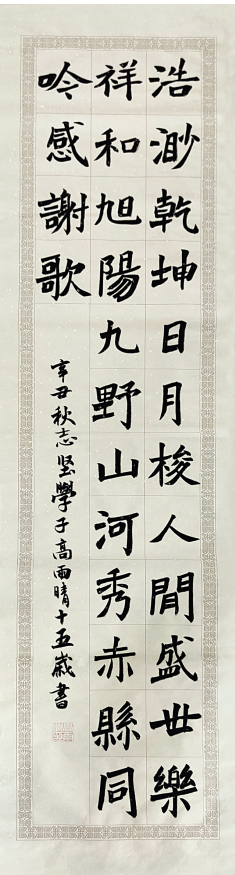 浩渺乾坤日月梭人間盛世樂
祥和旭陽九野山河秀赤縣同
吟感謝歌
辛丑秋志坚學子高雨晴十五歲書